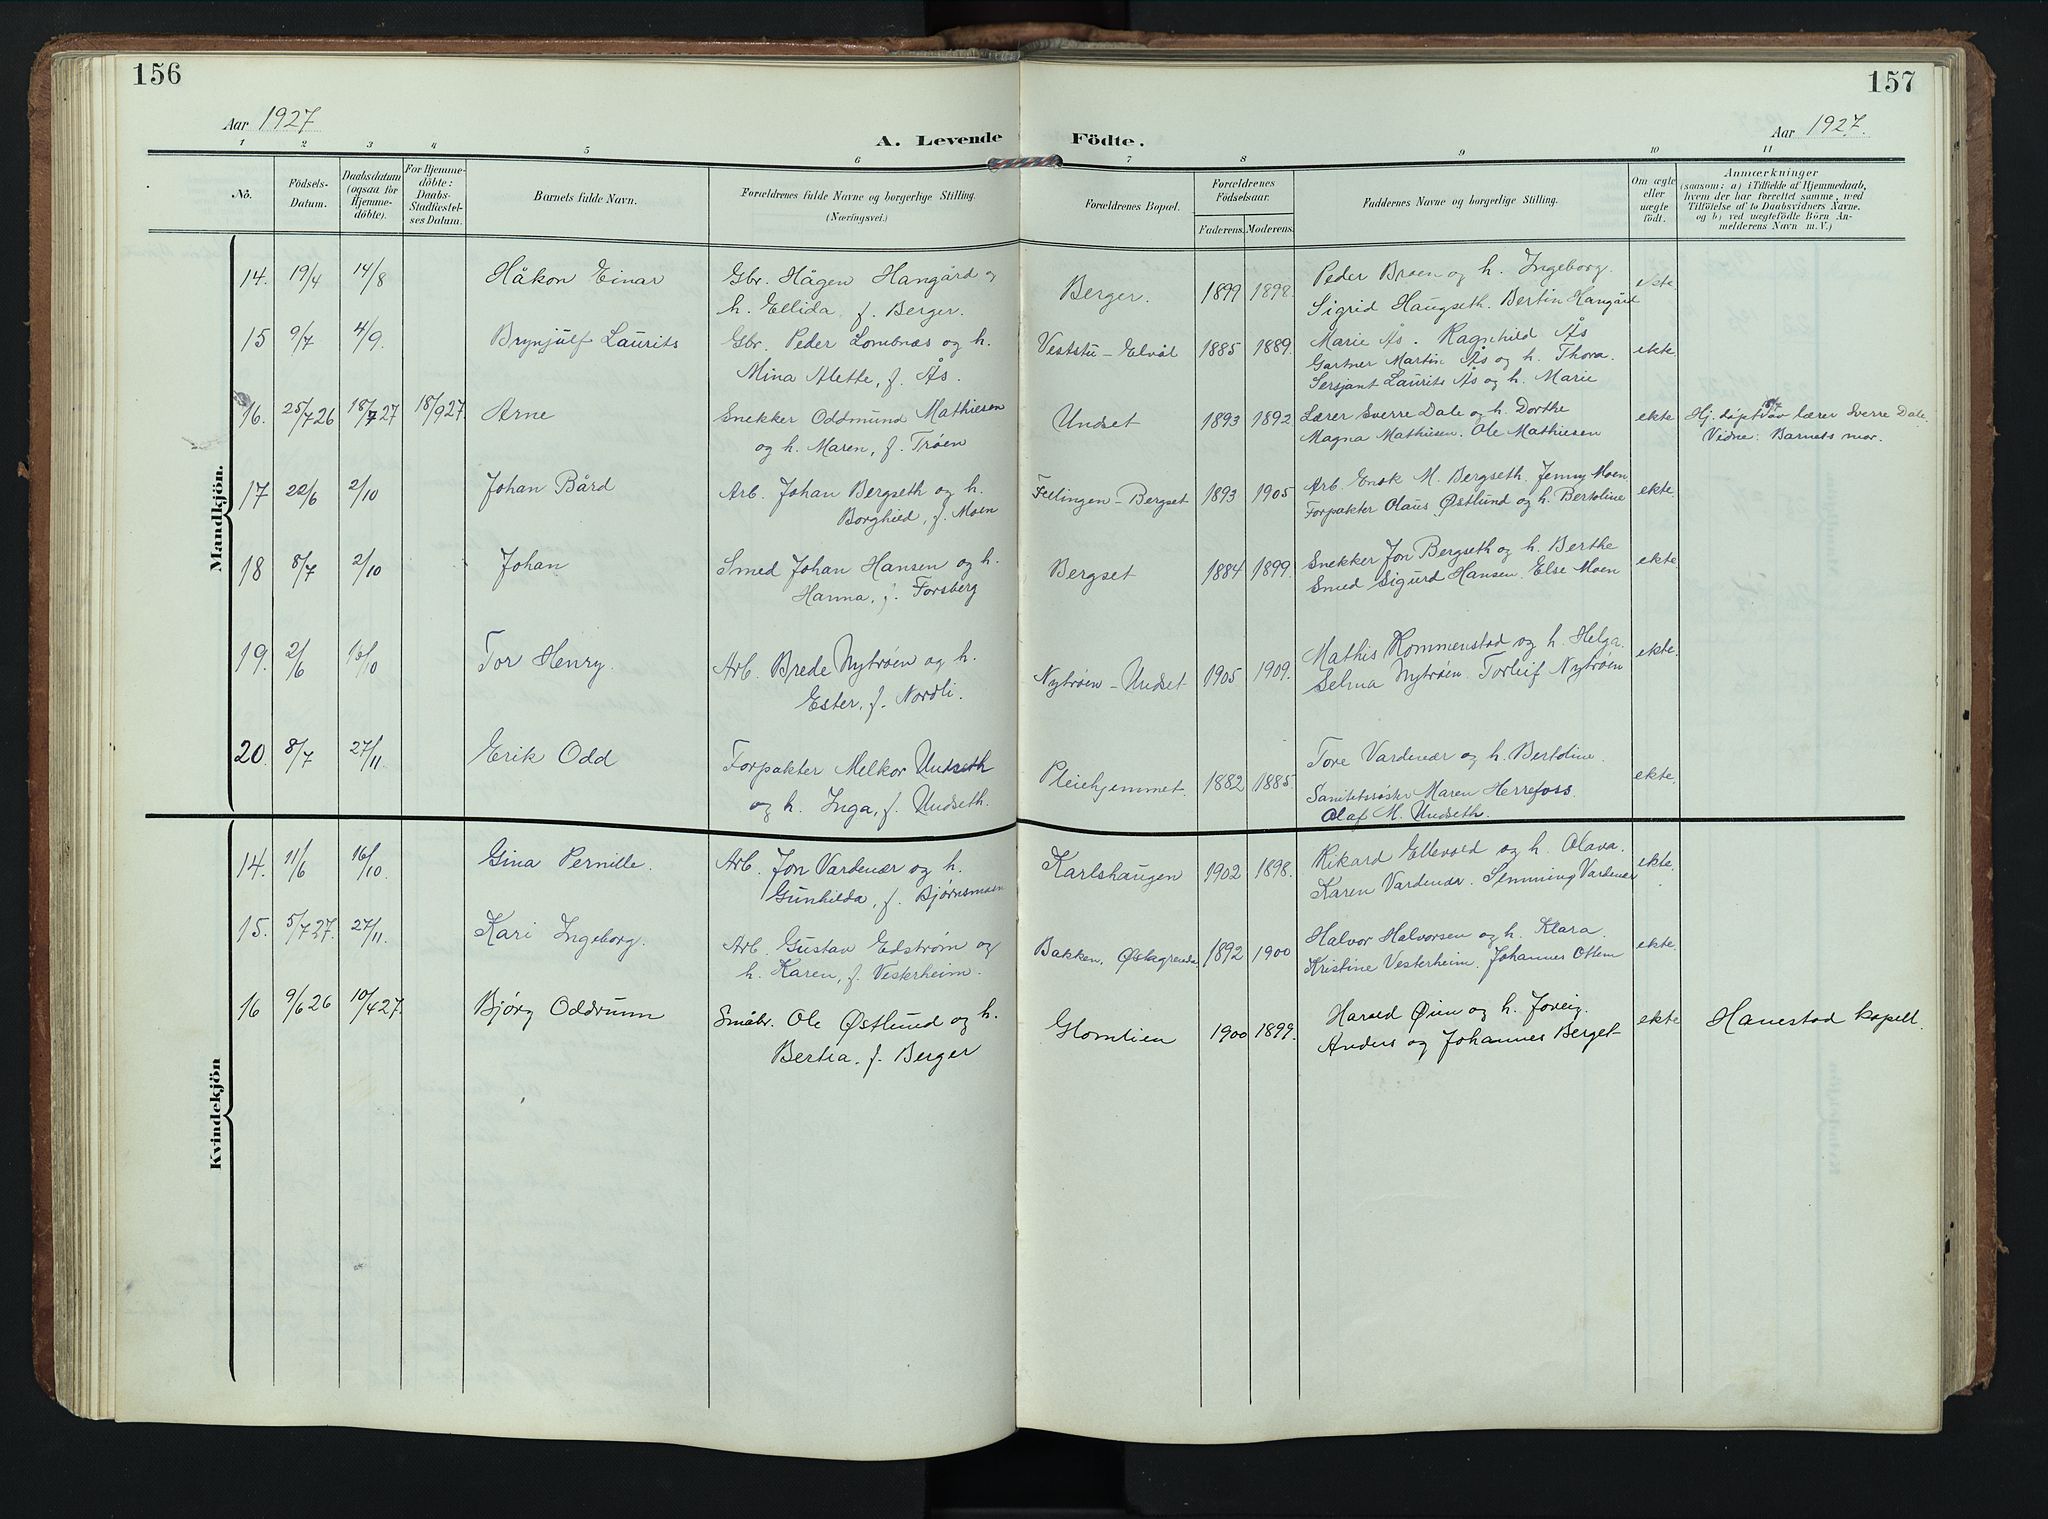 156
157
Aar 1927
A. Levende Födte.
Aar 1927.
1 2 3 4 5 6 7 8 9 10 11
No.
Födsels-
Datum.
Daabsdatum
(ogsaa for
Hjemme-
döbte).
For Hjemme-
döbte:
Daabs-
Stadfæstel-
ses Datum.
Barnets fulde Navn.
Forældrenes fulde Navne og borgerlige Stilling.
(Næringsvei.)
Forældrenes Bopæl.
Forældrenes
Födselsaar.
Faderens. Moderens.
Faddernes Navne og borgerlige Stilling.
Om ægte
eller
uægte
födt.
Anmærkninger
(saasom: a) i Tilfælde af Hjemmedaab,
hvem der har forrettet samme, med
Tilföielse af to Daabsvidners Navne.
og b) ved uægtefödte Börn An-
melderens Navn m. V.)
Mandkjön.
14. 19/4 14/8 Håkon Einar Gbr. Hågen Hangård og
h. Ellida, f. Berger.
Berger. 1899 1898. Peder Broen og h. Ingeborg.
Sigrid Haugseth. Bertin Hangård
ekte
15 9/7 4/9. Brynjulf Laurits Gbr. Peder Lombnæs og h.
Mina Alette, f. Ås.
Veststu - Elvål 1885 1889. Marie Ås. Ragnhild Ås
Gartner Martin Ås og h. Thora.
Sersjant Laurits Ås og h. Marie
ekte.
16. 25/7 26 18/7 27 18/9 27. Arne Snekker Oddmund Mathiesen
og h. Maren, f. Trøen
Undset 1893 1892 Lærer Sverre Dale og h. Dorthe
Magna Mathiesen. Ole Mathiesen
ekte Hj. døpt 18/7 av lærer Sverre Dale.
Vidne: Barnets mor.
17 22/6 2/10 Johan Bård Arb. Johan Bergseth og h.
Borghild, f. Moen
Fellingen - Bergset 1893 1905 Arb. Enok M. Bergseth. Jenny Moen
Forpakter Olaus Østlund og h. Bertoline
ekte.
18 8/7 2/10 Johan Smed Johan Hansen og h.
Hanna, f. Forsberg
Bergset 1884 1899. Snekker Jon Bergseth og h. Berthe
Smed Sigurd Hansen. Else Moen
ekte
19. 2/6 /10 Tor Henry. Arb. Brede Nytrøen og h.
Ester, f. Nordli.
Nytrøen - Undset 1905 1909. Mathis Kommenstad og h. Helga.
Selma Nytrøen. Torleif Nytrøen
ekte.
20. 8/7 27/11. Erik Odd Forpakter Melkor Undseth
og h. Inga, f. Undseth.
Pleiehjemmet. 1882 1885. Tore Vardenær og h. Bertoline.
Sanitetssøster Maren Herrefoss.
Olaf M. Undseth.
ekte.
Kvindekjön
14. 11/6 16/10. Gina Pernille. Arb. Jon Vardenær og h.
Gunhilda, f. Bjørnsmoen
Karlshaugen 1902 1898. Rikard Ellevold og h. Olava.
Karen Vardenær. Semming Vardenær
ekte.
15. 5/7 27. 27/11. Kari Ingeborg. Arb. Gustav Edstrøm og
h. Karen, f. Vesterheim.
Bakken, Østagrenda. 1892 1900 Halvor Halvorsen og h. Klara.
Kristine Vesterheim. Johannes Ottem
ekte.
16 9/6 26 10/4 27. Bjørg Oddrunn Småbr. Ole Østlund og h.
Bertea, f. Berger
Glomlien 1900 1899. Harald Øien og h. Joreig.
Anders og Johannes Berget
ekte Hanestad kapell.